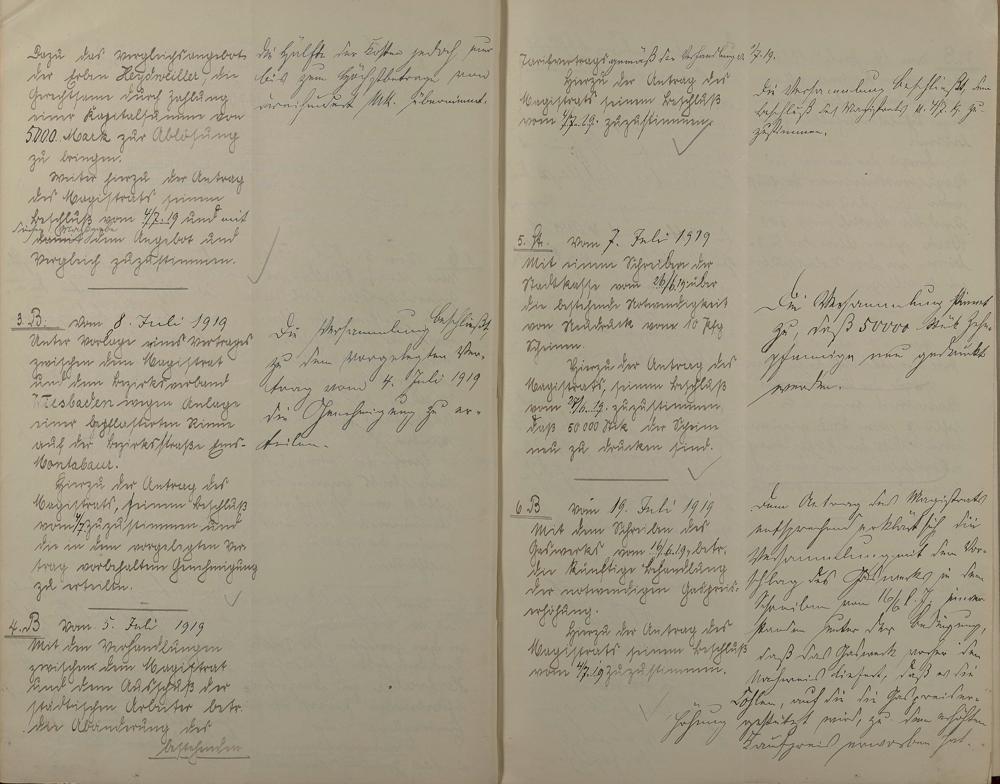 Dazu das Vergleichsangebot
der Erben Heydweiller die
Gerechtsame durch Zahlung
einer Kapitalsumme von
5000 Mark zur Ablösung
zu bringen.
Weiter hierzu der Antrag
des Magistrats seinem
Beschluß vom 4/7.19 und mit
damit dem Angebot und
Vergleich zuzustimmen.
die Hälfte der Kosten jedoch nur
bis zum Höchstbetrage von
dreihundert Mk. übernimmt.
3. B. vom 8. Juli 1919
Unter Vorlage eines Vertrages
zwischen dem Magistrat
und dem Bezirksverband
Wiesbaden wegen Anlage
einer gepflasterten Rinne
auf der Bezirksstraße Ems-
Montabaur.
Hierzu der Antrag des
Magistrats, seinem Beschluß
vom 4/7 zuzustimmen und
die in dem vorgelegten Ver
trag vorbehaltene Genehmigung
zu erteilen.
Die Versammlung beschließt
zu dem vorgelegten Ver-
trag vom 4. Juli 1919
die Genehmigung zu er-
teilen.
4. B vom 5. Juli 1919
Mit den Verhandlungen
zwischen dem Magistrat
und dem Ausschuß der
städtischen Arbeiter betr.
der Abänderung des
bestehenden
Tarifvertrags gemäß der Verhandlung
Hierzu der Antrag des
Magistrats seinem Beschluß
vom 4/7.19. zuzustimmen.
Die Versammlung beschließt, dem
Beschluß des Magistrats v. 4/7. 19 zu-
zustimmen.
5. St. vom 7. Juli 1919
Mit einem Schreiben der
Stadtkasse vom 26/6.19 über
die bestehende Notwendigkeit
von Neudruck vom 10 Pfg
Scheinen.
Hierzu der Antrag des
Magistrats, seinem Beschluß
vom 28/6.19. zuzustimmen,
daß 50 000 Stck der Scheine
neu zu drucken sind.
Die Versammlung stimmt
zu, daß 50000 Stück Zehn-
pfennige neu gedruckt
werden.
6 B vom 19. Juli 1919
Mit dem Schreiben des
Gaswerks vom 16/6.19, betr.
die künftige Behandlung
der notwendigen Gaspreis-
erhöhung.
Hierzu der Antrag des
Magistrats seinem Beschluß
vom 4/7.19 zuzustimmen.
Dem Antrag des Magistrats
entsprechend erklärt sich die
Versammlung mit dem Vor-
schlag des Gaswerks in dem
Schreiben vom 16/6 l. Js. einver
standen unter der Bedingung,
daß das Gaswerk vorher den
Nachweis liefert, daß es die
Kohlen, auf die die Gaspreiser-
höhung gestützt wird, zu dem erhöhten
Kaufpreis erworben hat.